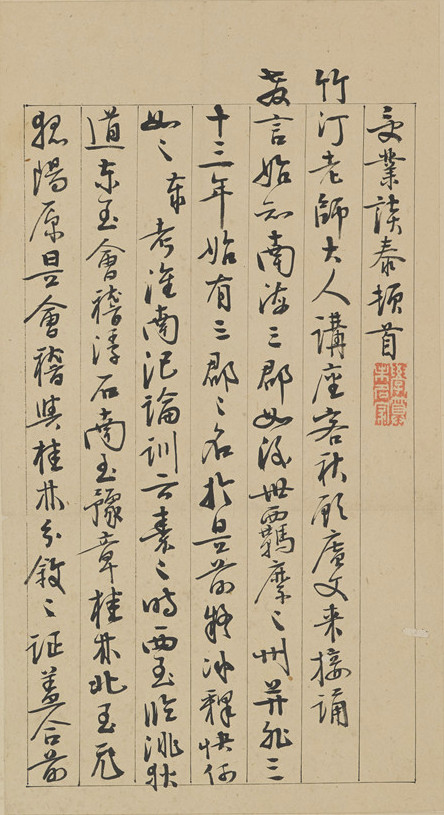 受業談泰頓首
竹汀老師大人講座客秋顧廣文来接誦
教言始知南海三郡如後世羈縻之州并非三
十三年始有三郡之名於是前疑冰釋快何
如之泰考淮南氾論訓云秦之時西至臨洮狄
道东至會稽浮石南至豫章桂林北至飛
狐陽原是會稽與桂林分敘之証蓋合前